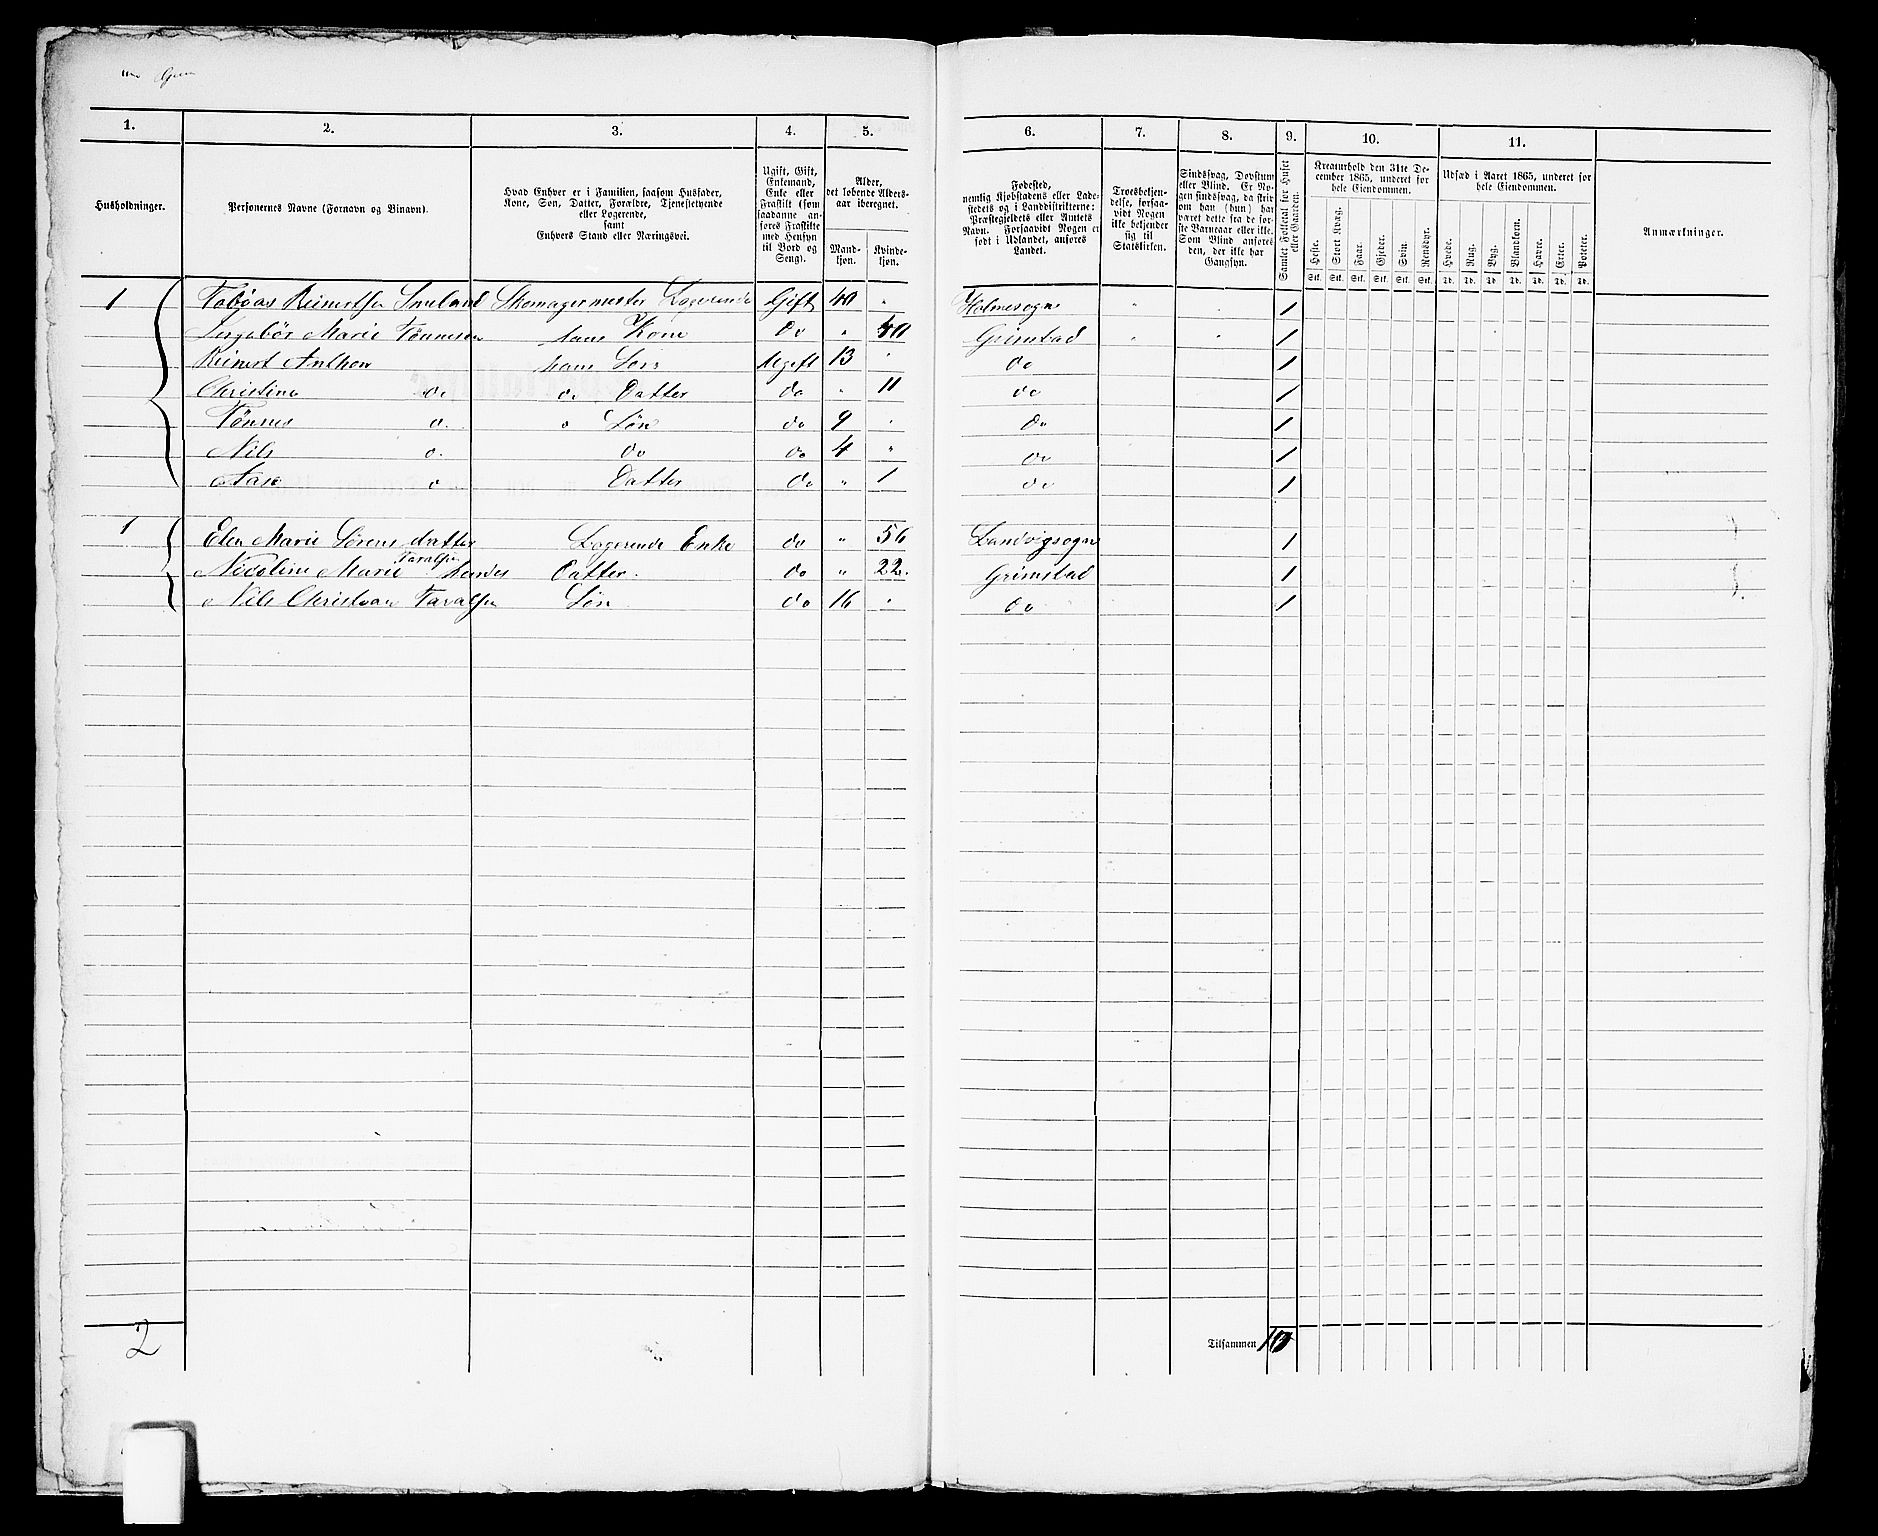 1. 2. 3. 4. 5. 6. 7. 8. 9. 10. 11.
Husholdninger.
Personernes Navne (Fornavn og Binavn).
Hvad Enhver er i Familien, saasom Husfader,
Kone, Søn, Datter, Forældre, Tjenestetyende
eller Logerende,
samt
Enhvers Stand eller Næringsvei.
Ugift, Gift,
Enkemand,
Enke eller
Fraskilt (som
saadanne an-
føres Fraskilte
med Hensyn
til Bord og
Seng).
Alder,
det løbende Alders-
aar iberegnet.
Mand-
kjøn.
Kvinde-
kjøn.
Fødested,
nemlig Kjøbstadens eller Lade-
stedets og i Landdistrikterne:
Præstegjeldets eller Amtets
Navn. Forsaavidt Nogen er
født i Udlandet, anføres
Landet.
Troesbekjen-
delse, forsaa-
vidt Nogen
ikke bekjender
sig til
Statskirken.
Sindssvag, Døvstum
eller Blind. Er No-
gen sindssvag, da skrives
om han (hun) har
været dette fra de før-
ste Barneaar eller ikke.
Som Blind anføres
den, der ikke har
Gangsyn.
Samlet Folketal for Huset
eller Gaarden.
Kreaturhold den 31te De-
cember 1865, underet for
hele Eiendommen.
Heste. Stort Kvæg. Faar. Gjeder. Svin. Rensdyr.
Stk. Stk. Stk. Stk. Stk. Stk.
Udsæd i Aaret 1865, underet for
hele Eiendommen.
Hvede. Rug. Byg. Blandkorn. Havre. Erter. Poteter.
Td. Td. Td. Td. Td. Td. Td.
Anmærkninger.
1 Tobias Reinertsen Skomagermester Logerende Gift 40 " Holmesogn " 1
Ingebør Marie Tønnesen hans Kone do " 40 Grimstad 1
Reinert Anthon hans Søn Ugift 13 " do 1
Christine do do Datter do " 11 do 1
Tønnes do Søn do 9 " do 1
Nils do do do 4 " do 1
Aase do Datter do " 1 do 1
1 Elen Marie Sørensdatter Logerende Enke do " 56 Landvigsogn 1
Taralsen
Nicoline Marie hendes Datter. do " 22. Grimstad 1
Nils Christian Taralsen Søn do 16 " do 1
2
Tilsammen 10